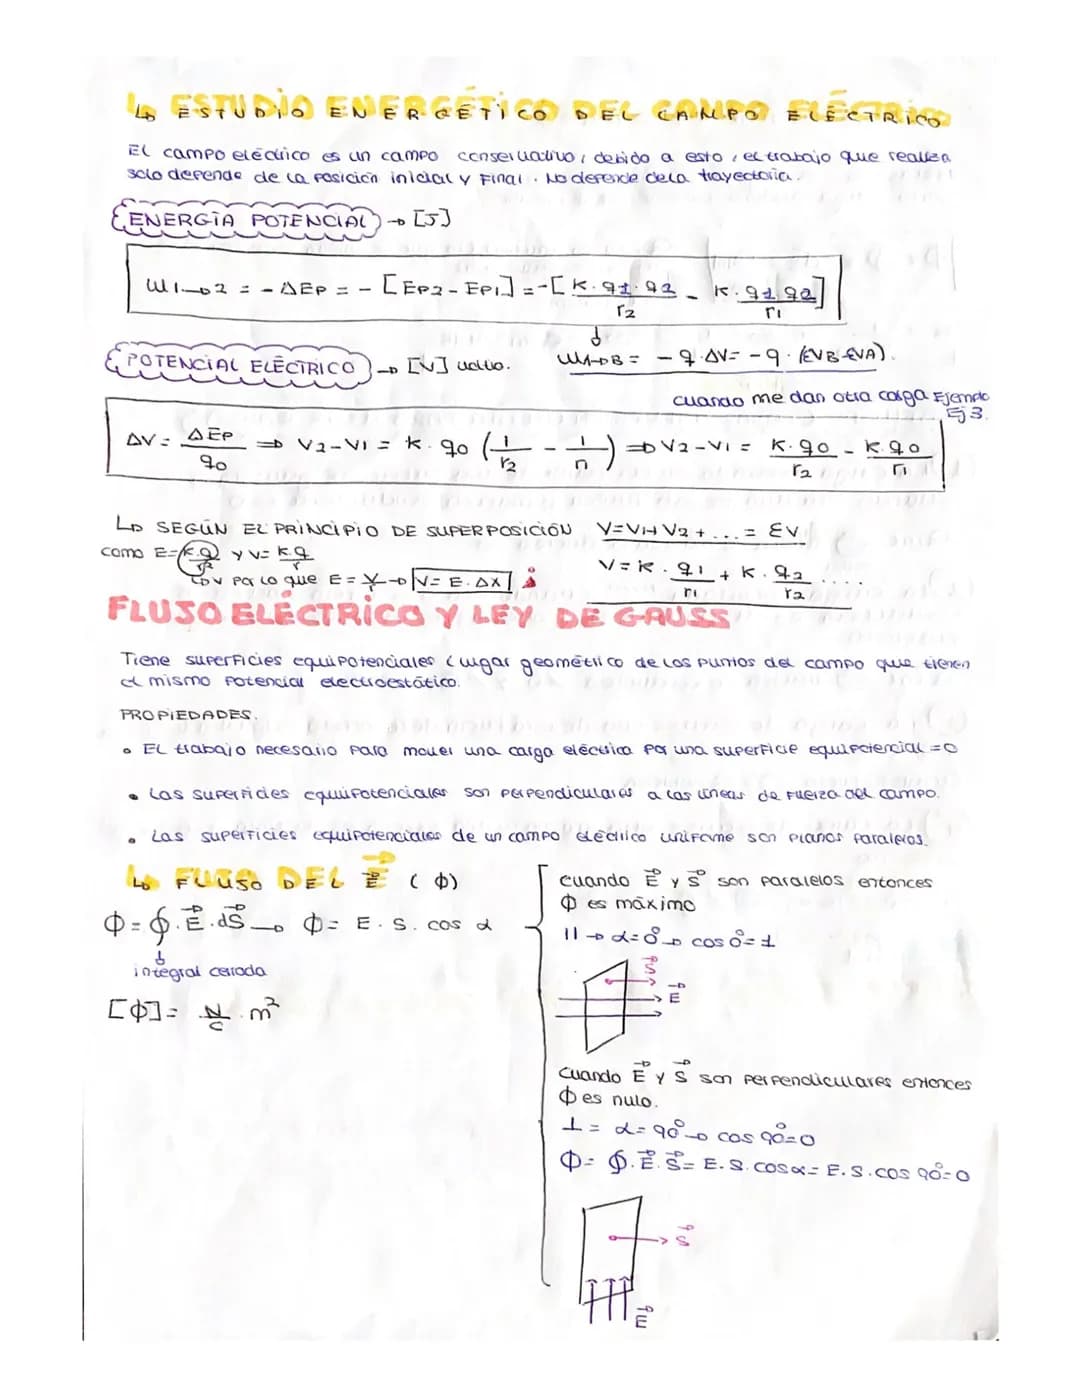 ↳ ESTUDIO ENERGÉTICO DEL CAMPO ELÉCTRICO
El campo eléctrico es un campo conservativo, debido a esto, el trabajo que realiza
solo depende de la posición inicial y final. No depende de la trayectoria.
ENERGÍA POTENCIAL → [J]
W1→2 = - ΔEp = - [Ep2 - Ep1] = -[K·q1·q2/r2 - K·q1·q2/r1]
POTENCIAL ELÉCTRICO → [V] voltio.
WA→B = - q·ΔV = - q·(ΣVB-ΣVA)
cuando me dan otra carga Ejemplo
Ej 3.
ΔV = ΔEp/q0 ⇒ V2-V1 = K·q0 (1/r2 - 1/r1) ⇒ V2-V1 = K·q0/r2 - K·q0/r1
↳ SEGÚN EL PRINCIPIO DE SUPERPOSICIÓN V=V1+V2+... = ΣV
como E=K·Q/r² y V=K·q/r
V=K·q1/r1 + K·q2/r2 ....
↳V por lo que E=V/r→ V=E·ΔX
FLUJO ELÉCTRICO Y LEY DE GAUSS
Tiene superficies equipotenciales (lugar geométrico de los puntos del campo que tienen
el mismo potencial electroestático.
PROPIEDADES.
• El trabajo necesario para mover una carga eléctrica por una superficie equipotencial =0
• Las superficies equipotenciales son perpendiculares a las líneas de fuerza del campo.
• Las superficies equipotenciales de un campo eléctrico uniforme son planos paralelos.
↳ FLUJO DEL E⃗ (Φ)
Φ=∮·E⃗·dS⃗ → Φ= E·S·cos α
↓
integral cerrada
[Φ]= N/C · m²
cuando E⃗ y S⃗ son paralelos entonces
Φ es máximo
|| → α=0° → cos 0°=1
S⃗
E⃗
cuando E⃗ y S⃗ son perpendiculares entonces
Φ es nulo.
⊥ = α=90° → cos 90°=0
Φ= ∮·E⃗·S⃗= E·S·cosα= E·S·cos 90°=0
S⃗
E⃗